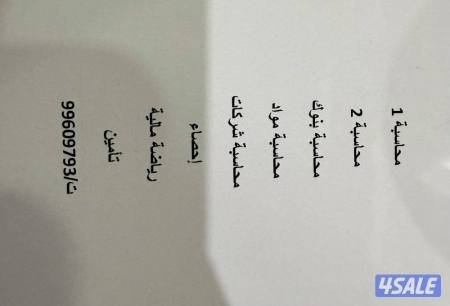 محاسبة 1
محاسبة 2
محاسبة بنوك
محاسبة مواد
محاسبة شركات
إحصاء
رياضة مالية
تأمين
ت/99609793
4SALE